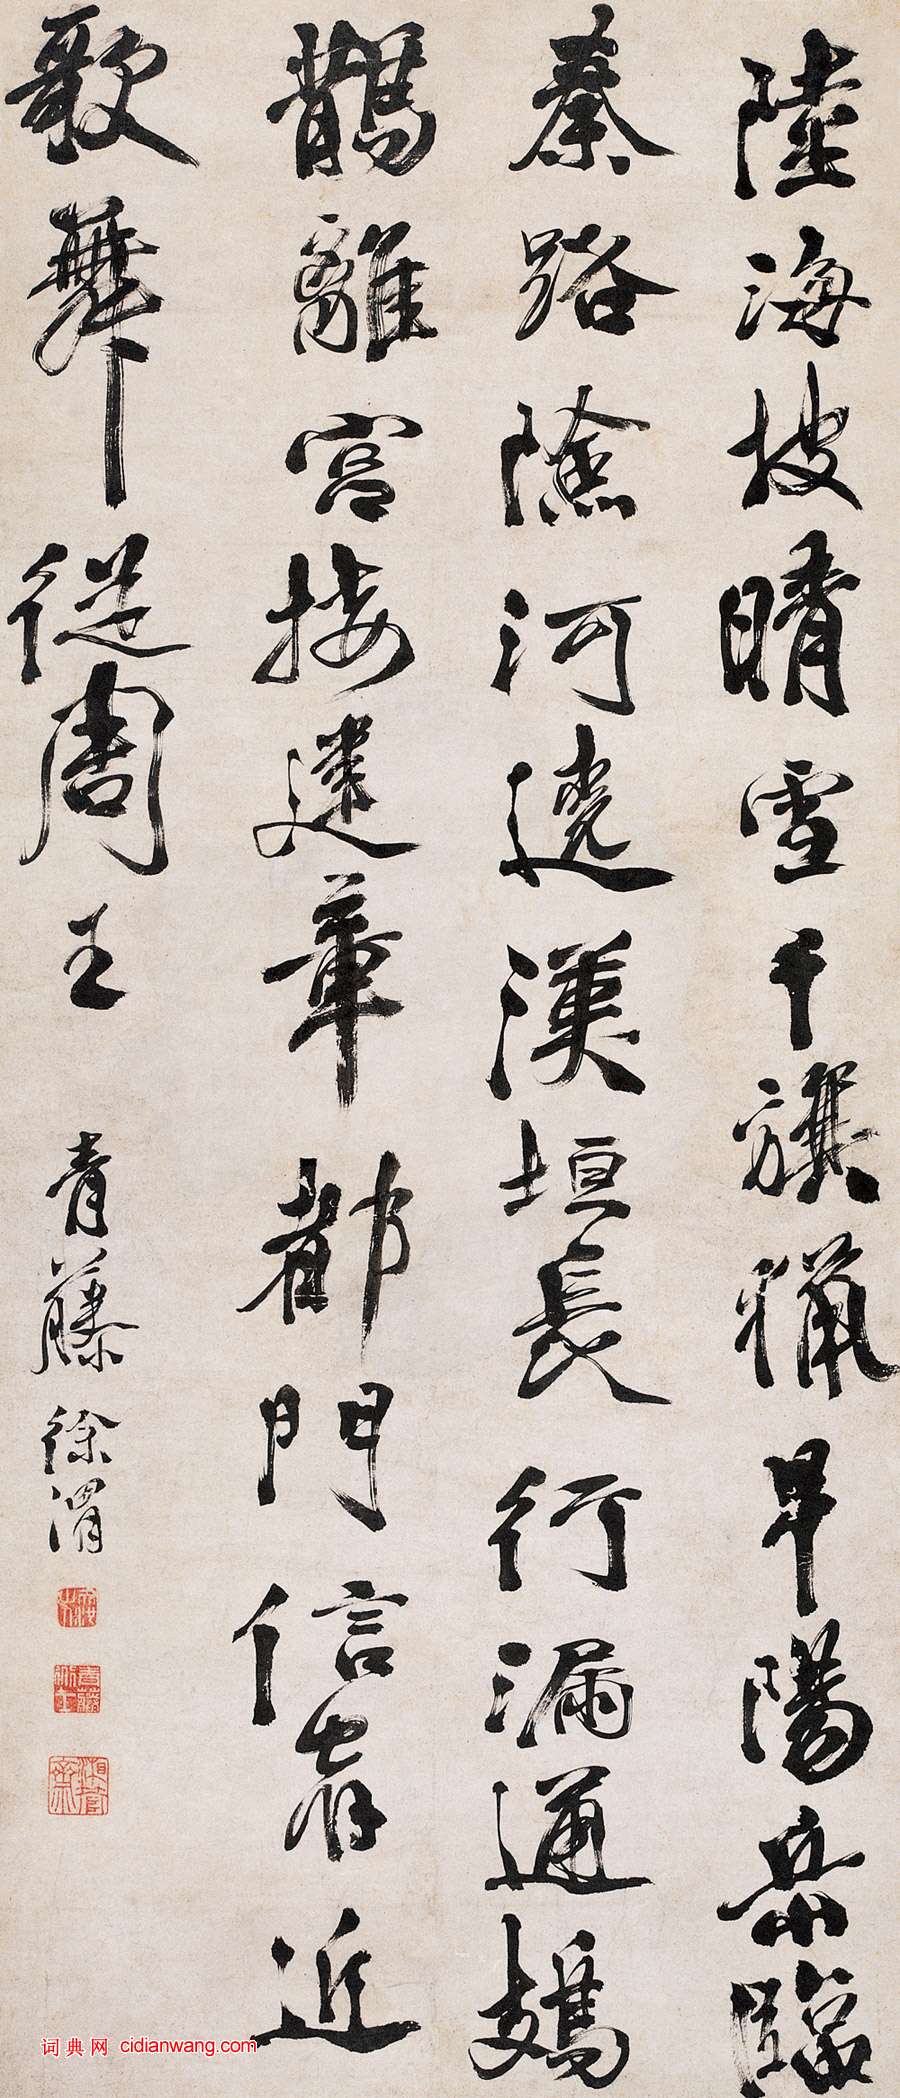 陸海披晴雪千旗獵早陽岳臨
秦路險河遶漢垣長行漏通鳷
鵲離宮接建章都門信宿近
歌舞從周王
青藤徐渭
湘管齋
词典网 cidianwang.com